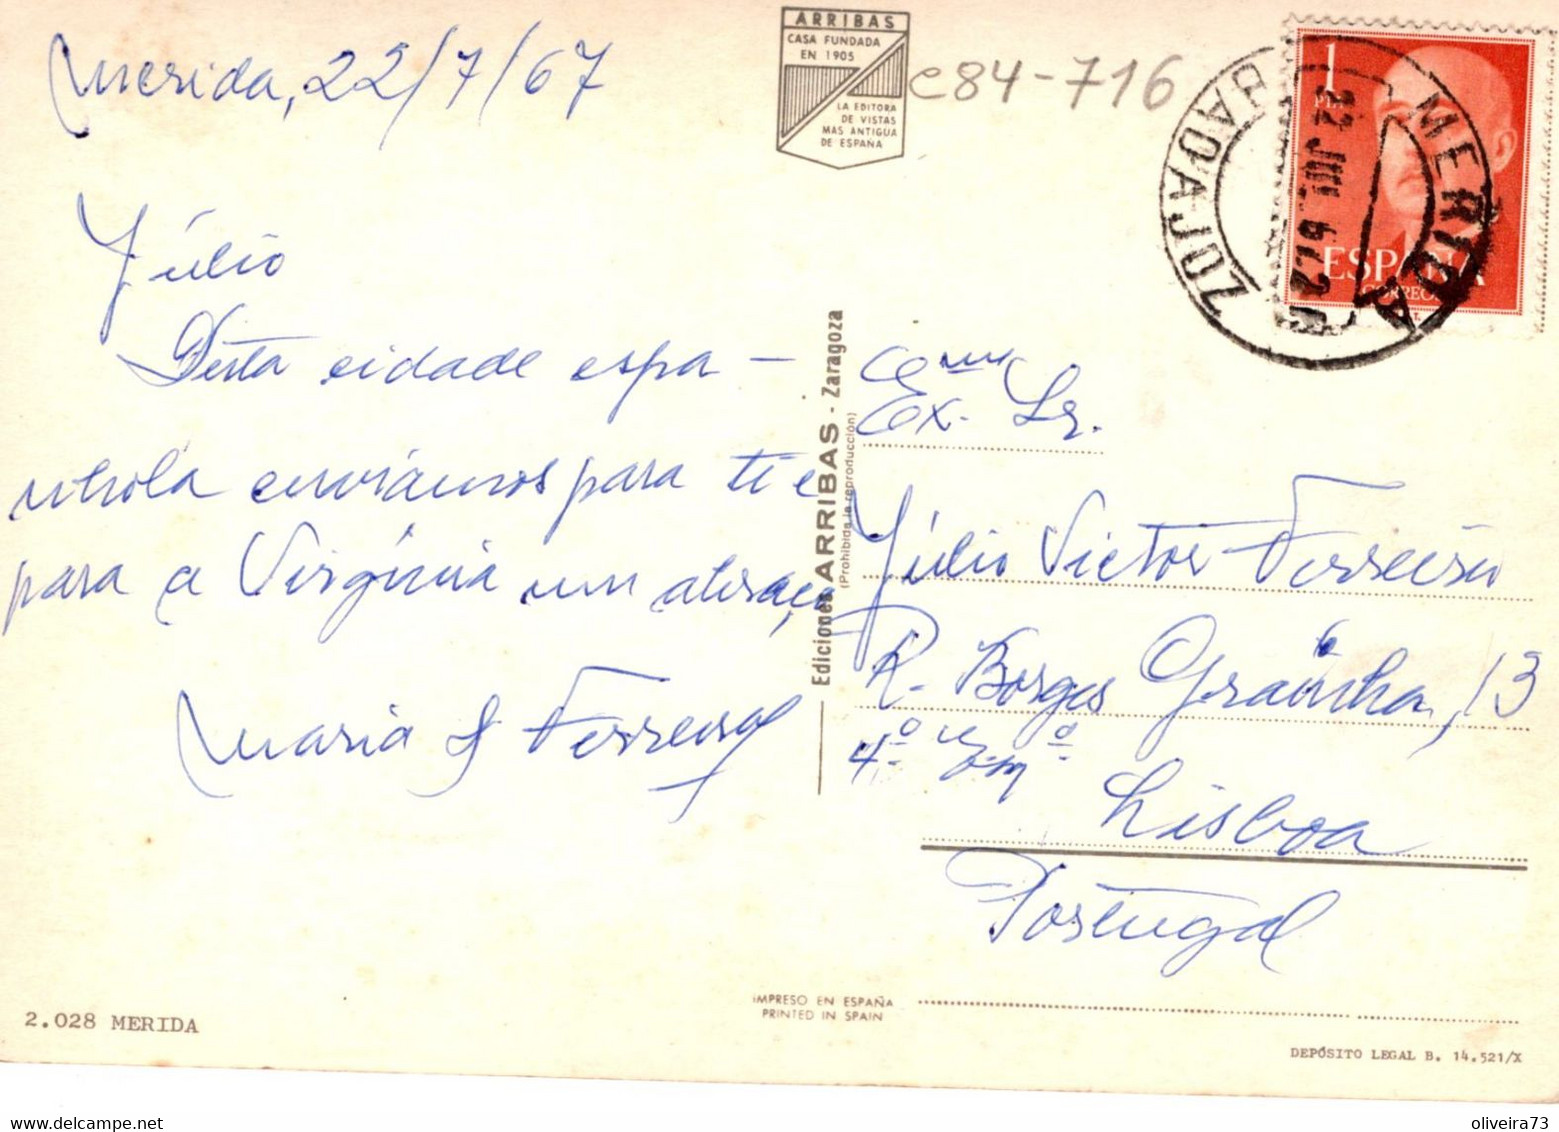 Merida, 22/7/67
ARRIBAS
CASA FUNDADA
EN 1905
LA EDITORA
DE VISTAS
MAS ANTIGUA
DE ESPAÑA
e84-716
1
PTA
ESPAÑA
CORREOS
MERIDA
BADAJOZ
22 JUL 67
Júlio
Desta cidade espa-
nhola enviámos para ti e
para a Virgínia um abraço
Maria J Ferreira
Ediciones ARRIBAS - Zaragoza
(Prohibida la reproducción)
Exmo Sr.
Júlio Victor Ferreira
R. Borges Grainha, 13
4.º
Lisboa
Portugal
2.028 MERIDA
IMPRESO EN ESPAÑA
PRINTED IN SPAIN
DEPÓSITO LEGAL B. 14.521/X
oliveira73